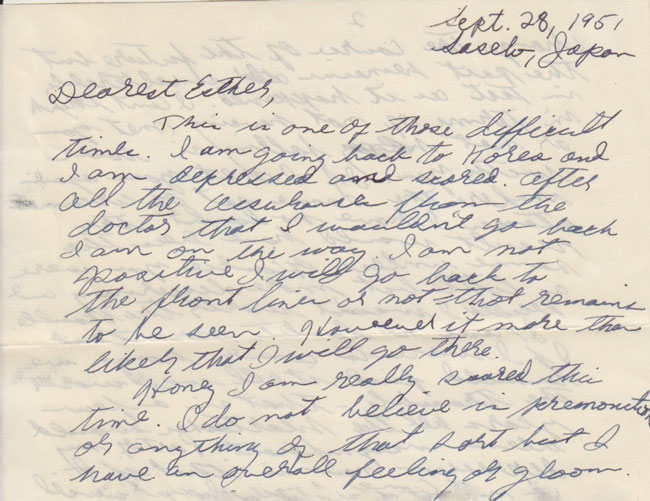 Sept. 28, 1951
Sasebo, Japan
Dearest Esther,
This is one of those difficult
times. I am going back to Korea and
I am depressed and scared. After
all the assurances from the
doctor that I wouldn't go back
I am on the way. I am not
positive I will go back to
the front lines or not - that remains
to be seen. However it more than
likely that I will go there.
Honey I am really scared this
time. I do not believe in premonition
or anything of that sort but I
have an overall feeling of gloom.